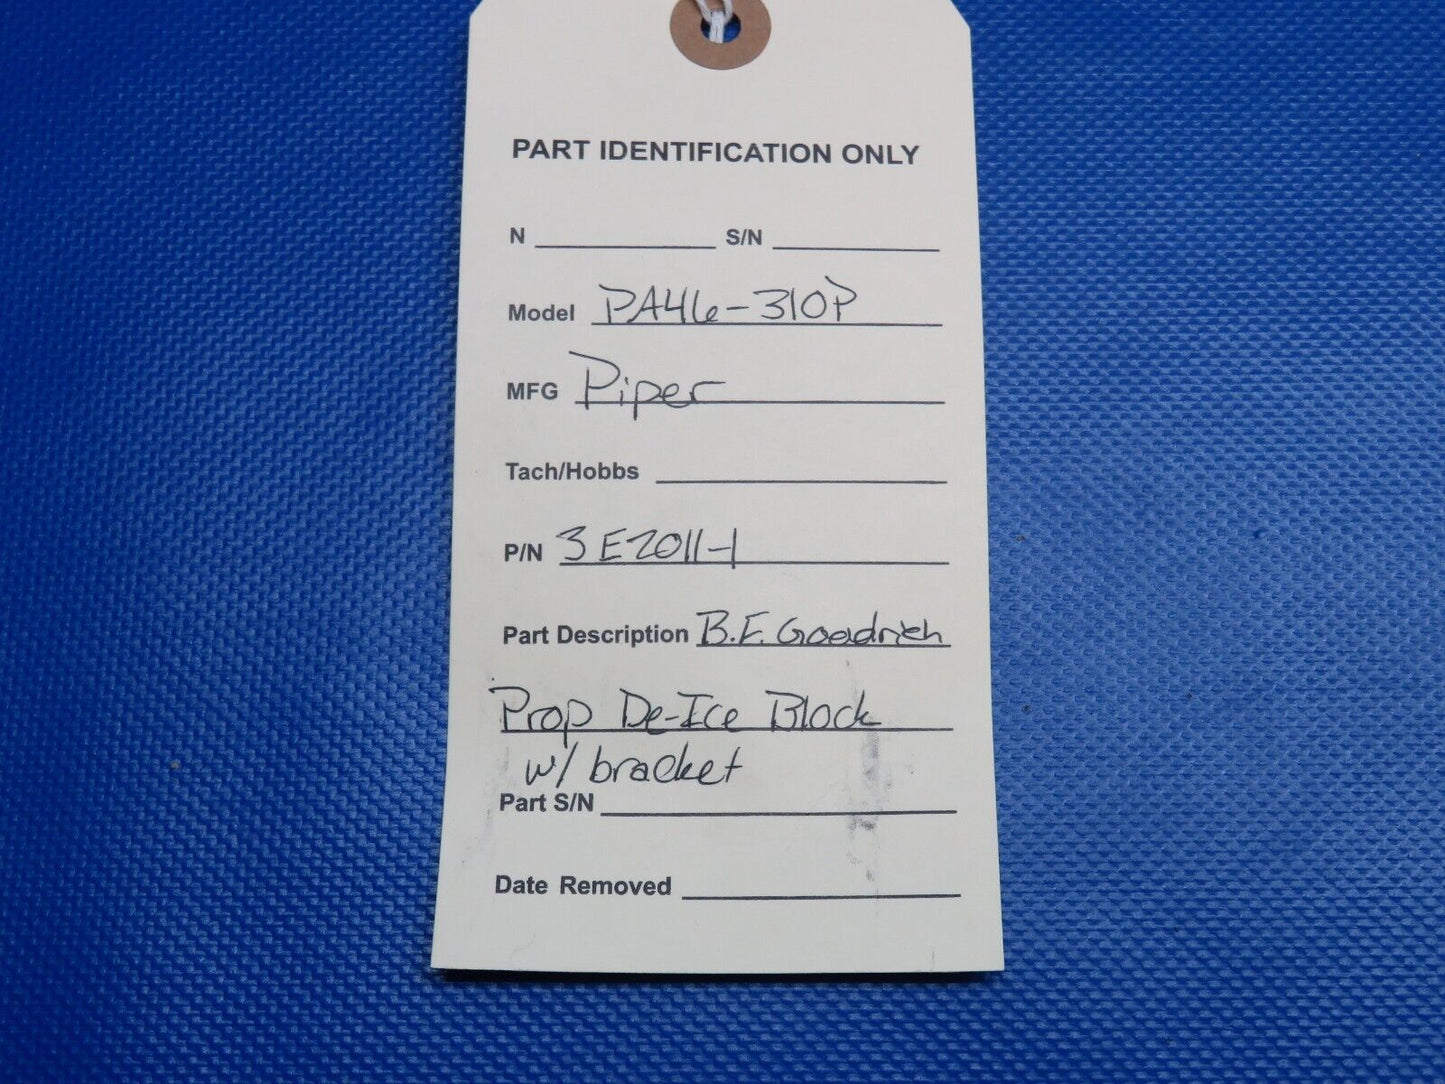 PART IDENTIFICATION ONLY
N S/N
Model PA46-310P
MFG Piper
Tach/Hobbs
P/N 3E2011-1
Part Description B.F. Goodrich
Prop De-Ice Block
w/ bracket
Part S/N
Date Removed